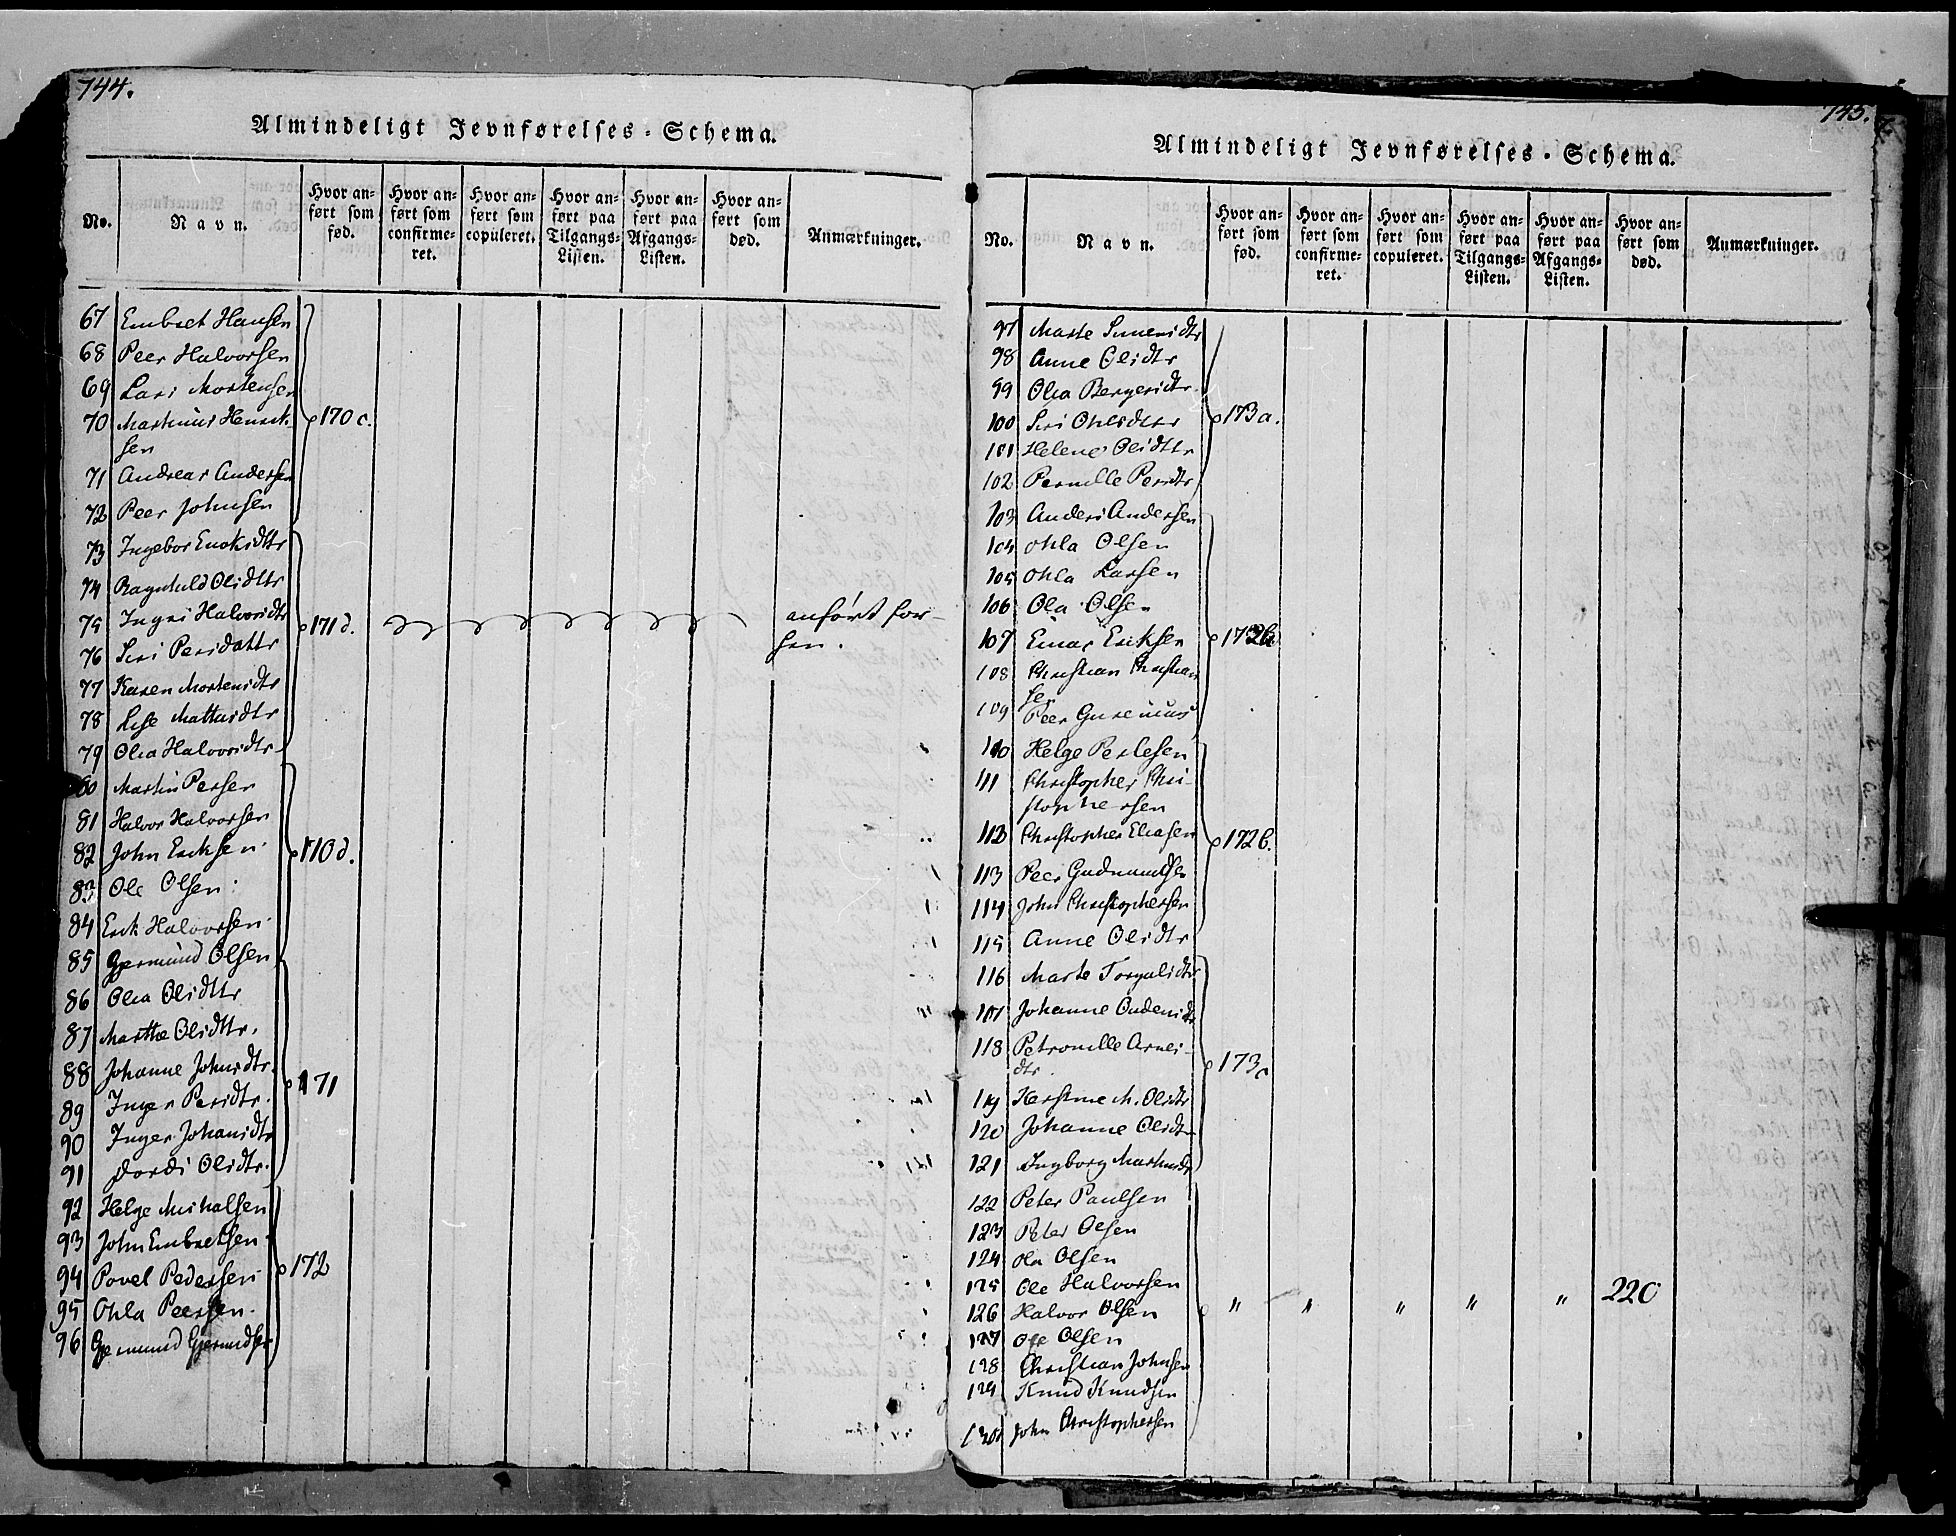 744.
Almindeligt Jevnførelses-Schema.
No. Navn. Hvor anført som fød. Hvor anført som confirmeret. Hvor anført som copuleret. Hvor anført paa Tilgangs-Listen. Hvor anført paa Afgangs-Listen. Hvor anført som død. Anmærkninger.
67 Embret Hansen
68 Peer Halvorsen
69 Lars Mortensen
70 Martinus Henrik- 170 c.
sen
71 Andreas Andersen
72 Peer Johnsen
73 Ingebor
74 Ragnhild Olsdttr
75 Ingri Halvorsdtr 171 d. anført for-
76 Siri Persdattr sen.
77 Karen Mortensdtr
78 Lise
79 Olia Halvorsdtr
80 Martin Persen
81 Halvor Halvorsen
82 John Eriksen 170 d.
83 Ole Olsen
84 Erik Halvorsen
85 Gjermund Olsen
86 Olia Olsdttr
87 Marthe Olsdttr.
88 Johanne Johnsdtr. 171
89 Inger Persdtr.
90 Inger Johansdtr
91 Dordi Olsdtr.
92 Helge
93 John Embretsen
94 Povel Pedersen 172
95 Ohla Peersen
96 Gjermund Gjermundsen
745.
Almindeligt Jevnførelses-Schema.
No. Navn. Hvor anført som fød. Hvor anført som confirmeret. Hvor anført som copuleret. Hvor anført paa Tilgangs-Listen. Hvor anført paa Afgangs-Listen. Hvor anført som død. Anmærkninger.
97 Marte
98 Anne Olsdtr
99 Olia Bergersdtr.
100 Siri 173 a.
101 Helene Olsdttr
102 Pernille Persdtr
103 Anders Andersen
104 Ohla Olsen
105 Ohla Larsen
106 Ola Olsen
107 Einar Eriksen 172 b
108 Christian Christian
sen
109 Peer
110 Helge
111 Christopher Chri-
stophersen
112 Christopher Eliasen 172 b.
113 Peer Gudmundsen
114 John Christophersen
115 Anne Olsdtr
116 Marte
117 Johanne
118 Petronelle Arnes- 173 c
dtr.
119 M. Olsdtr
120 Johanne Olsdtr
121 Ingborg
122 Peter Paulsen
123 Peter Olsen
124 Ola Olsen
125 Ole Halvorsen
126 Halvor Olsen " " " " " 220
127 Ole Olsen
128 Christian Johnsen
129 Knud Knudsen
130 John Christophersen